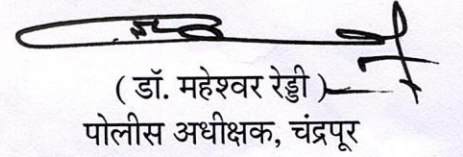 ( डॉ. महेश्वर रेड्डी )
पोलीस अधीक्षक, चंद्रपूर